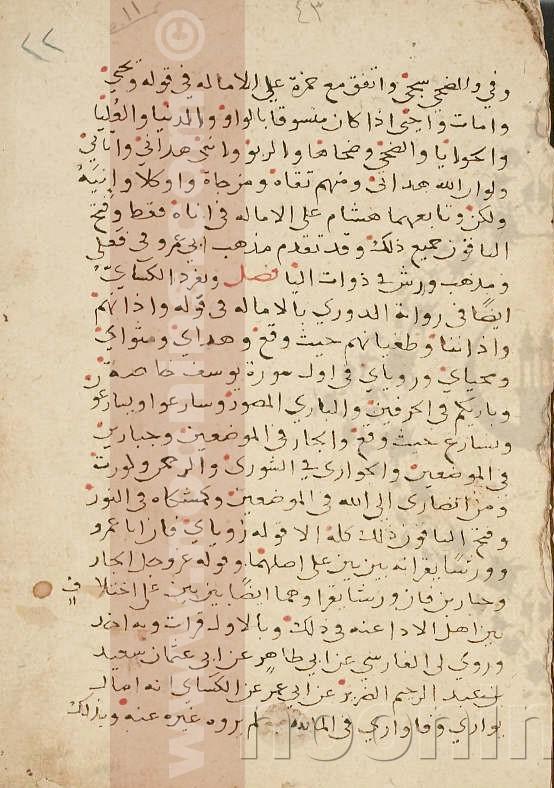 ٤٣
١١
٢٢
وفي والضحى سجى واتفق مع حمزة على الاماله في قوله ويحيى
وامات واحيى اذا كان منسوقا بالواو والدنيا والعليا
والحوايا والضحى وضحاها والربو وانني هداني واتاني
ولو ان الله هداني ومنهم تقاة ومزجاة واو كلا وانيه
ولكن وتابعهما هشام على الاماله في اناه فقط وفتح
الباقون جميع ذلك وقد تقدم مذهب ابي عمرو في فعلى
ومذهب ورش في ذوات اليا فصل وتفرد الكسايّ
ايضًا في رواية الدوري بالاماله في قوله واذانهم
واذاننا وطغيانهم حيث وقع وهداي ومثواي
ومحياي ورؤياي في اول سورة يوسف خاصة
وباريكم في الحرفين والباري المصور وسارعوا ويسارعو
ونسارع حيث وقع والجار في الموضعين وجبارين
في الموضعين والجواري في الشورى والرحمن وكورت
ومن انصاري الى الله في الموضعين وكمشكاة في النور
وفتح الباقون ذلك كله الا قوله رؤياي فان ابا عمرو
وورشًا يقرانه بين بين على اصلهما وقوله عز وجل الجار
وجبارين فان ورشا يقراوهما ايضًا بين بين على اختلاف
بين اهل الادا عنه في ذلك وبالاول قرات وبه اخذ
وروى لي الفارسي عن ابي طاهر عن ابي عثمان سعيد
بن عبد الرحيم الضرير عن ابي عمر عن الكساي انه امال
يواري وفاواري في المائدة ولم يروه غيره عنه وبذلك
www.
©
noomin